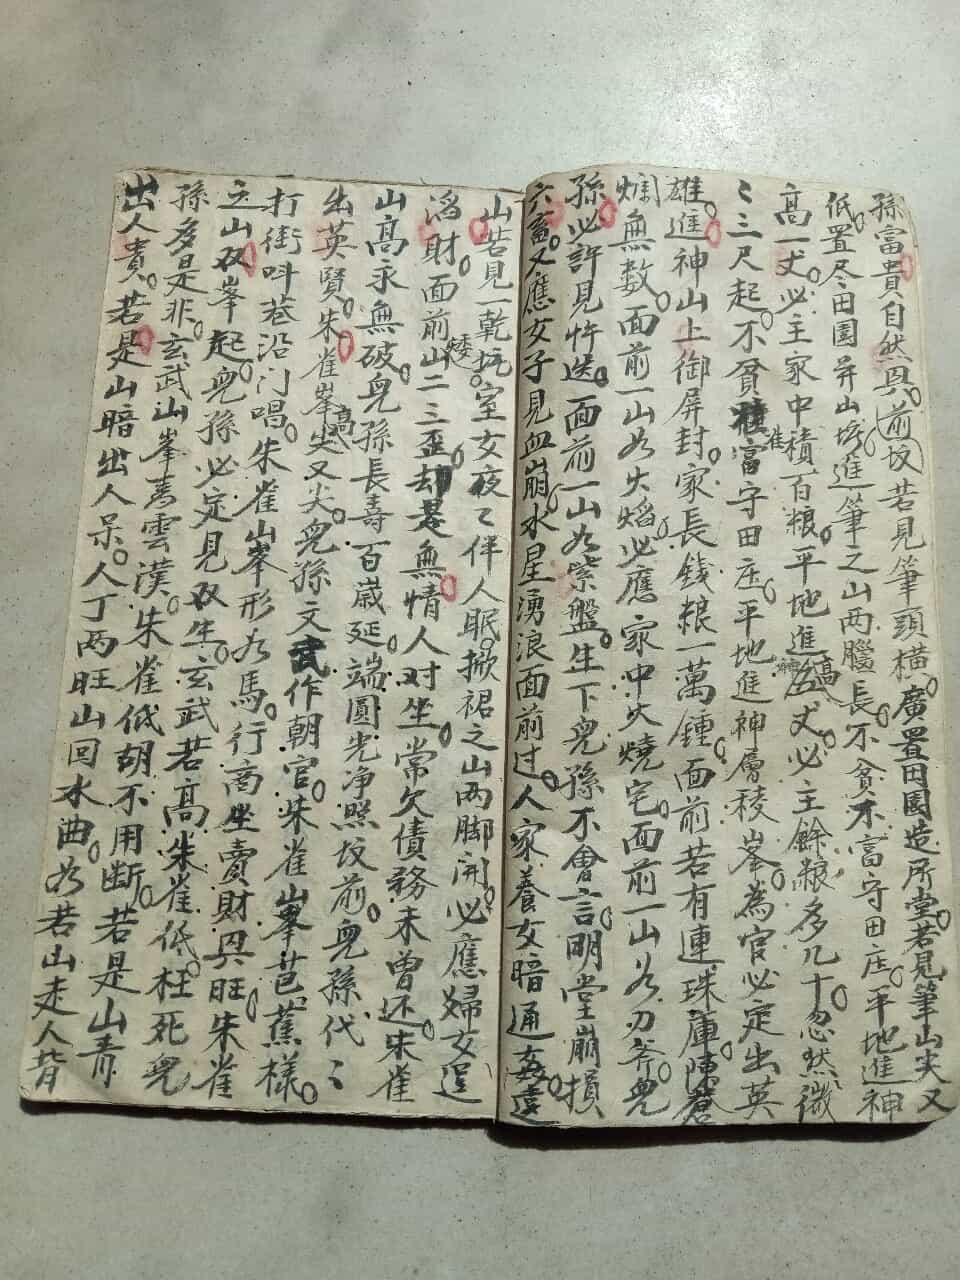 孫富貴自然興。前坟若見筆頭橫。廣置田園造所堂。若見筆山尖又
低。置尽田園并山塆進筆之山両腦長。不貧不富守田庄。平地進神
高一丈。必主家中積百粮。平地進高丈。必主餘粮多几十。忽然微
〻三尺起。不貧富守田庄。平地進神層稜峯。為官必定出英
雄。進神山上御屏封。家長錢粮一萬鍾。面前若有連珠庫。陳倉
爛無数。面前一山如火焰。必應家中火燒宅。面前一山如刃斧。兒
孫必許見忤逆。面前一山如紫盤。生下兒孫不會言。明堂崩損
六畜。又應女子見血崩。水星湧浪面前过。人家養女暗通姦。遠
山若見一乾坑。室女夜〻伴人眠。掀裙之山両脚開。必應婦女逞
滔財。面前矮山二三歪。却是無情人对坐。常欠債務未曾还。朱雀
山高永無破。兒孫長寿百歲延。端圓光净照坟前。兒孫代〻
出英賢。朱雀峯高尖又尖。兒孫文武作朝官。朱雀山峯芭蕉様。
打街呌巷沿门唱。朱雀山峯形如馬。行商坐賣財興旺。朱雀
之山双峯起。兒孫必定見双生。玄武若高朱雀低。枉死兒
孫多是非。玄武山峯高雲漢。朱雀低胡不用断。若是山青
出人貴。若是山暗出人呆。人丁両旺山回水曲。如若山走人背